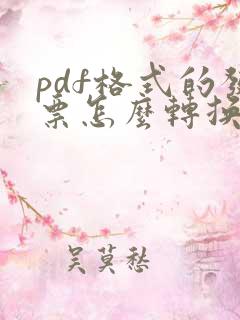 pdf格式的發
票怎麼轉換
吳莫愁